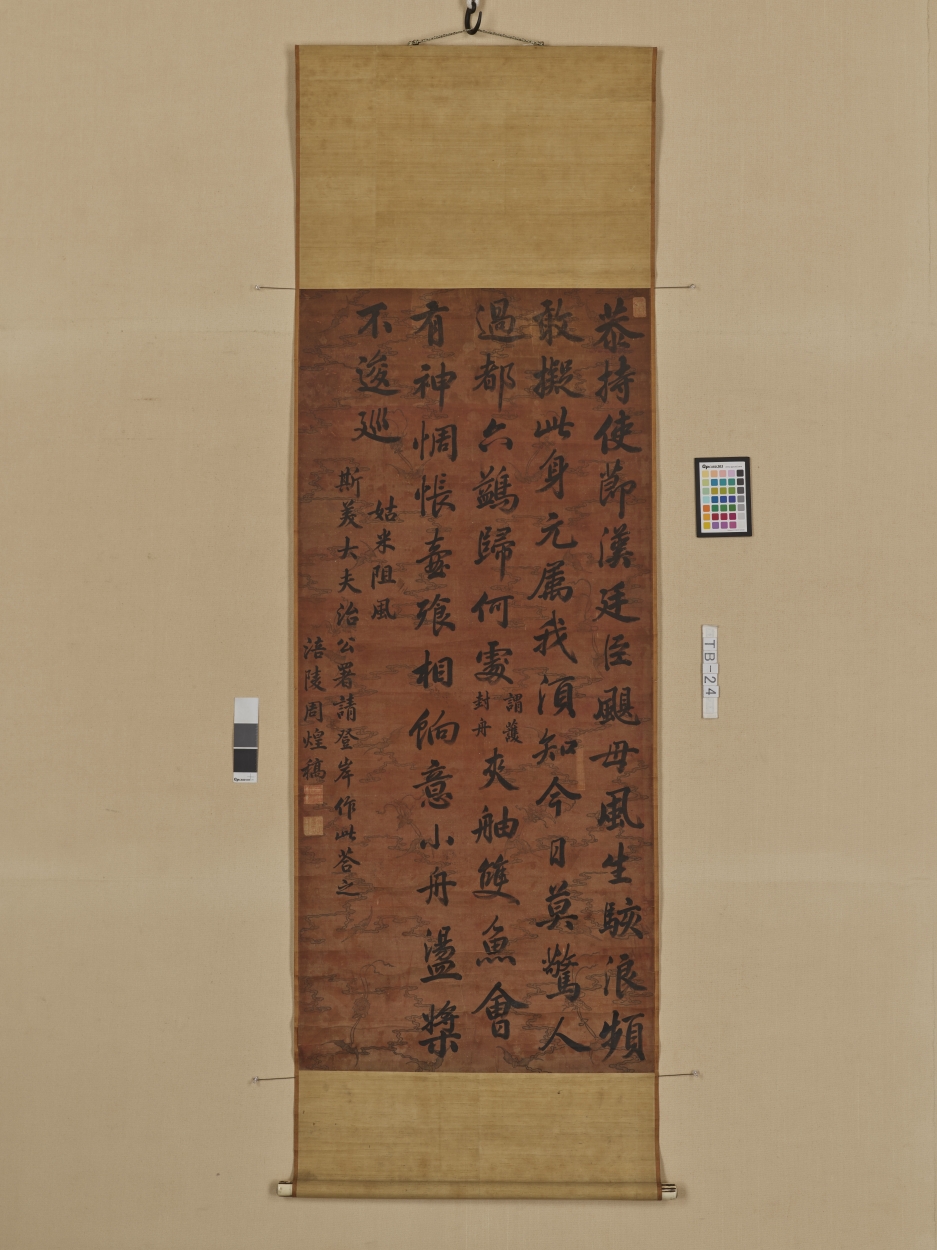 恭持使節漢廷臣颶母風生駭浪頻
敢擬此身元属我須知今日莫驚人
過都六鷁歸何處
謂護
封舟
夾舳雙魚會
有神惆悵壺飱相餉意小舟盪槳
不逡巡
姑米阻風
斯羙大夫治公署請登岸作此荅之
涪陵周煌稿
TB-24